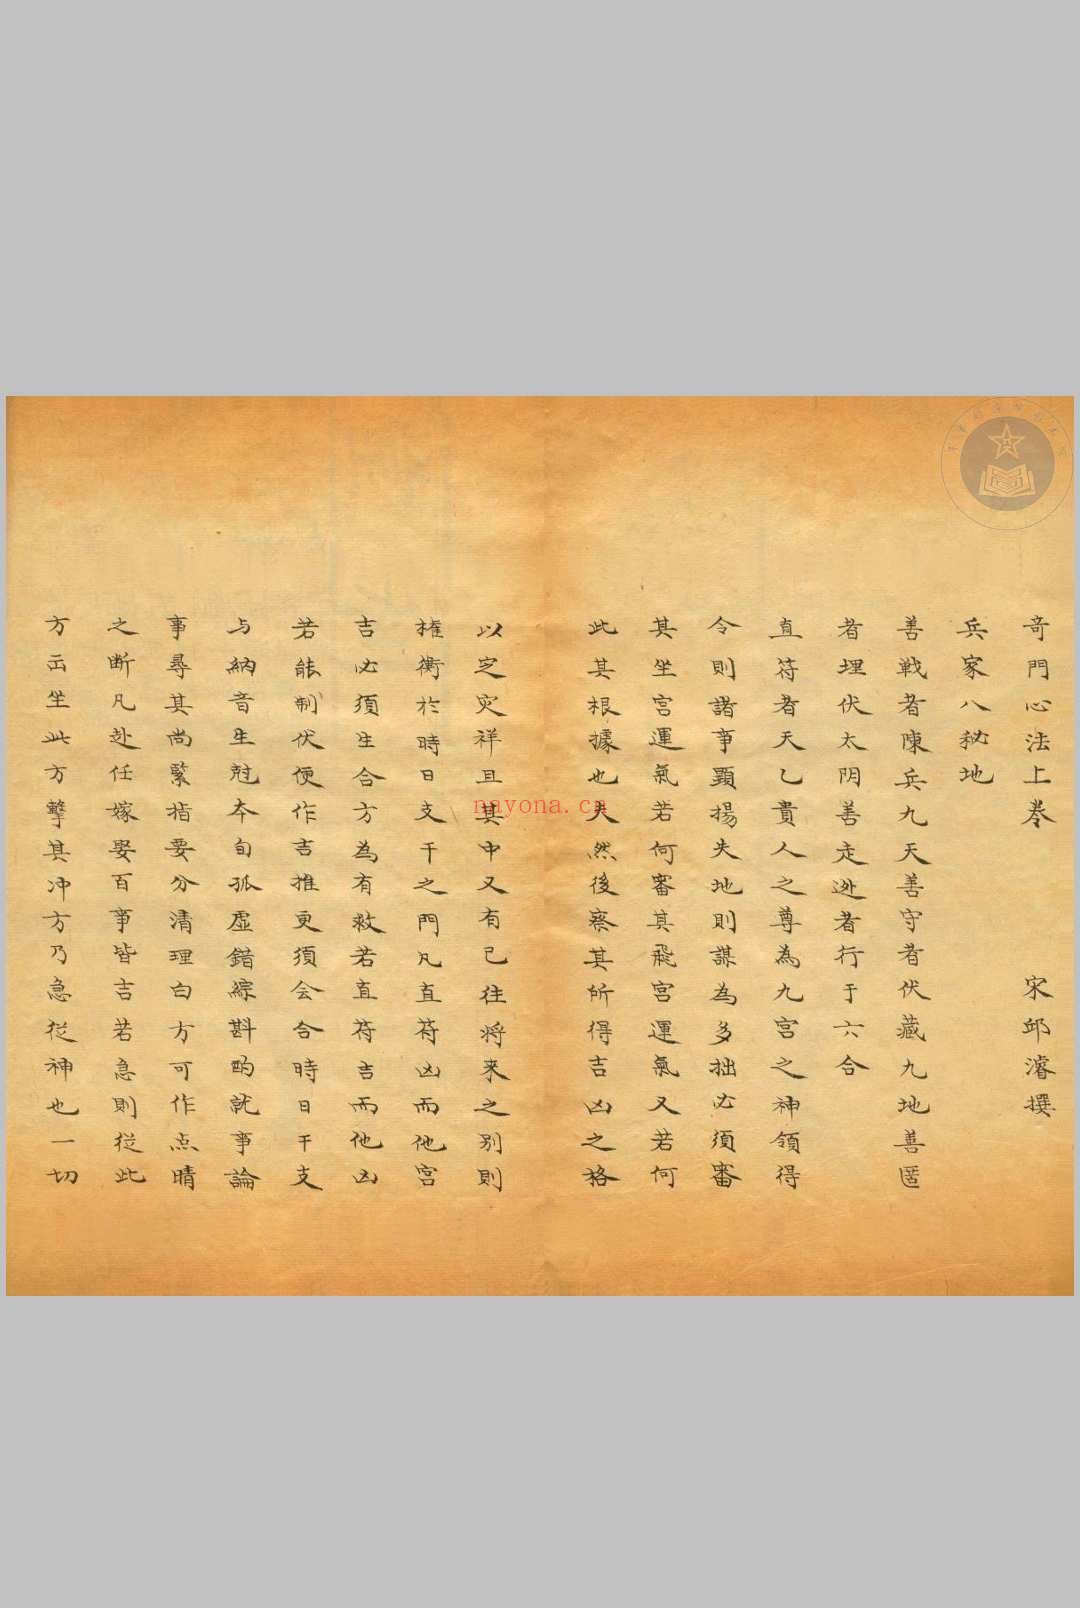 奇門心法上卷　宋邱濬撰
兵家八秘地
善戰者陳兵九天善守者伏藏九地善匿
者埋伏太阴善走逃者行于六合
直符者天乙貴人之尊為九宮之神領得
令則諸事顕揚失地則謀為多拙必須審
其坐宮運氣若何審其飛宮運氣又若何
此其根據也夫然後察其所得吉凶之格
以定灾祥且其中又有已往将来之别則
權衡於時日支干之門凡直符凶而他宮
吉必須生合方為有救若直符吉而他凶
若能制伏便作吉推更須会合時日干支
与納音生尅本旬孤虛錯綜斟酌就事論
事尋其尚緊指要分清理白方可作点睛
之断凡赴任嫁娶百事皆吉若急則從此
方而坐此方擊其冲方乃急從神也一切
nayona.cn